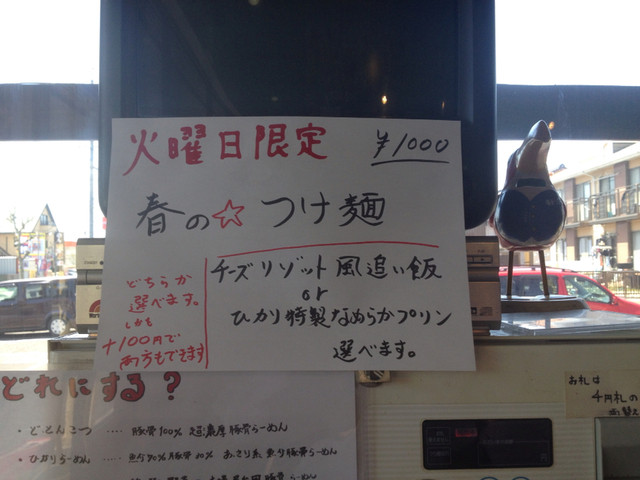 火曜日限定 ¥1000
春の☆つけ麺
チーズリゾット風追い飯
or
ひかり特製なめらかプリン
選べます。
どちらか
選べます。
しかも
+100円で
両方もできます
どれにする?
・どとんこつ ‥‥ 豚骨100% 超濃厚豚骨らーめん
・ひかりらーめん
お札は
千円札の